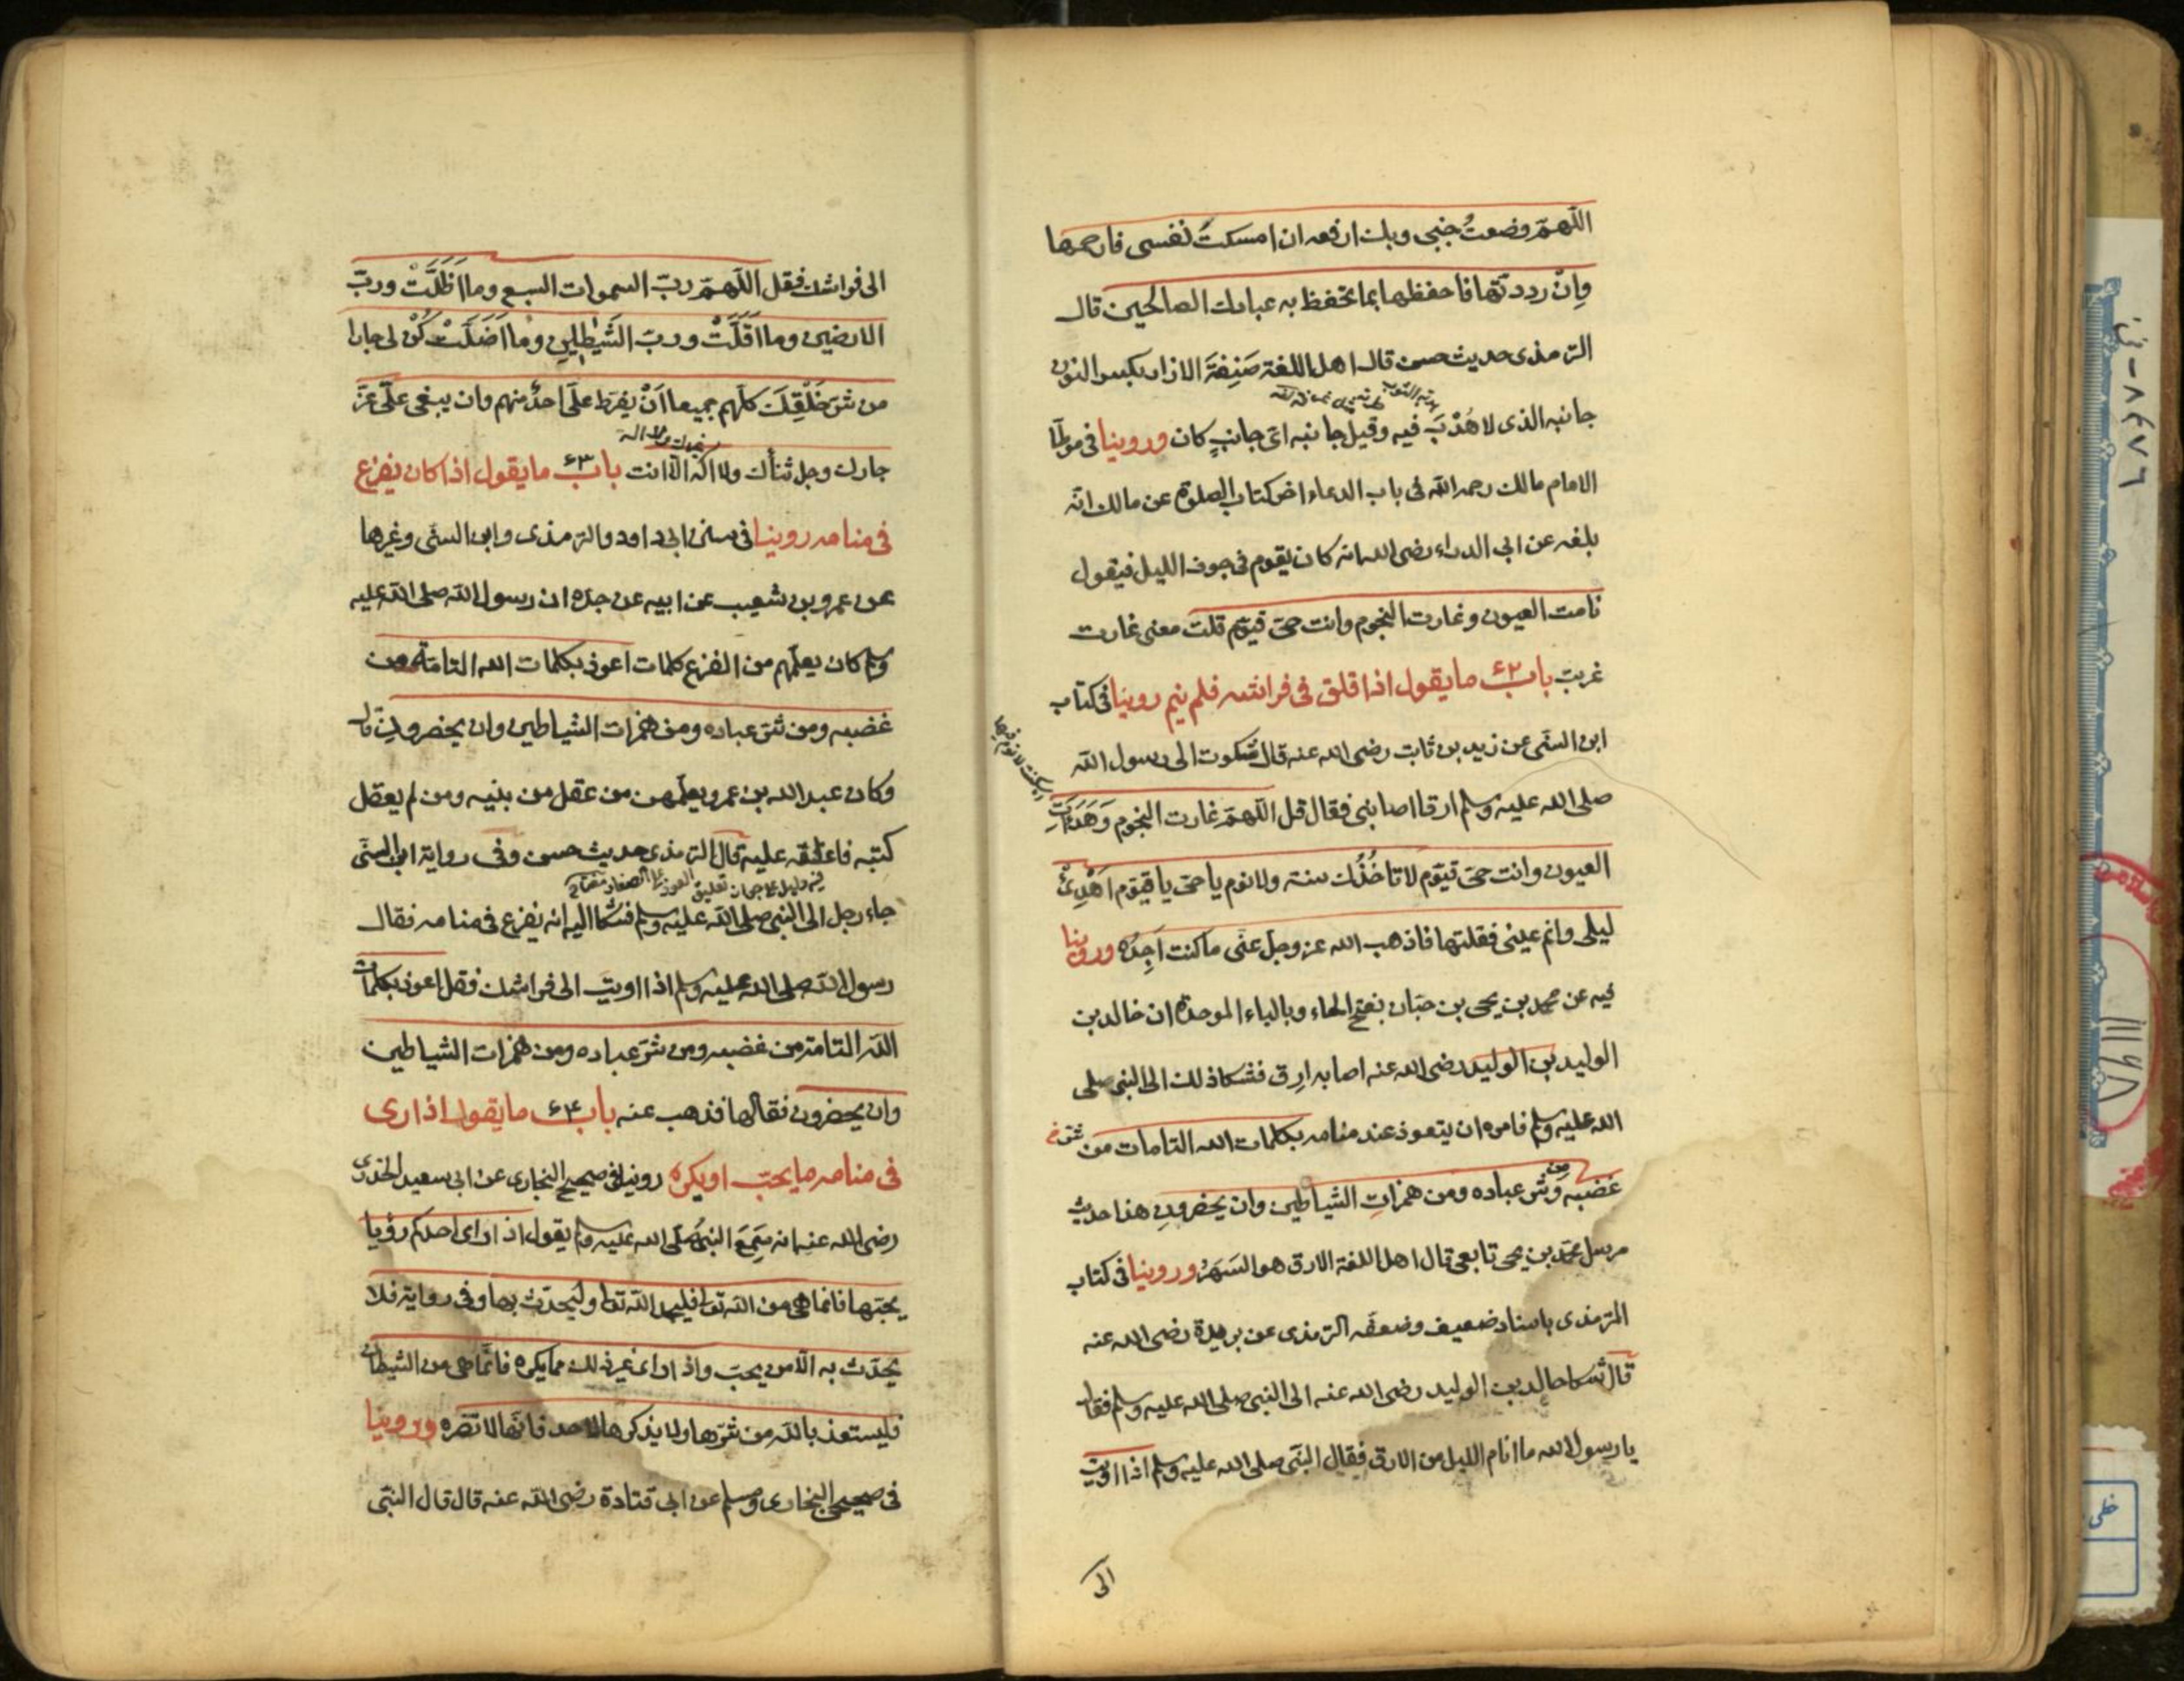 اللّهمّ وضعتُ جنبى وبك ارفعه ان امسكتَ نفسى فارحمها
وإن رددتّها فاحفظها بما تحفظ به عبادك الصالحين قال
الترمذى حديث حسن قال اهل اللغة صَنِفَة الازار بكسر النون
جانبه الذى لا هُدْبَ فيه وقيل جانبه اىّ جانبٍ كان وروينا فى موطّا
الامام مالك رحمه الله فى باب الدعاء اخر كتاب الصلوة عن مالك انّه
بلغه عن ابى الدرداء رضى الله انه كان يقوم فى جوف الليل فيقول
نامت العيون وغارت النجوم وانت حىّ قيّوم قلت معنى غارت
غربت باب ٦٢ ما يقول اذا قلق فى فراشه فلم ينم روينا فى كتاب
ابن السنّى عن زيد بن ثابت رضى الله عنه قال شكوت الى رسول الله
صلى الله عليه وسلم ارقا اصابنى فقال قل اللّهمّ غارت النجوم وَهَدَأتِ
العيون وانت حىّ قيّوم لا تاخُذُك سنة ولا نوم يا حىّ يا قيّوم اَهْدِئْ
ليلى وانم عينى فقلتها فاذهب الله عز وجل عنّى ما كنت اَجِدُه وروينا
فيه عن محمد بن يحيى بن حبّان بفتح الحاء وبالباء الموحدة ان خالد بن
الوليد بن الوليد رضى الله عنه اصابه ارق فشكا ذلك الى النبى صلى
الله عليه وسلم فامره ان يتعوذ عند منامه بكلمات الله التامات من شرّ خ
غضبه ومن شر عباده ومن همزات الشياطين وان يحضرون هذا حديث
مرسل محمّد بن يحيى تابعى قال اهل اللغة الارق هو السَهَرُ وروينا فى كتاب
الترمذى باسناد ضعيف وضعفّه الترمذى عن بريدة رضى الله عنه
قال شكا خالد بن الوليد رضى الله عنه الى النبى صلى الله عليه وسلم فقال
يا رسول الله ما انام الليل من الارق فقال النبّى صلى الله عليه وسلم اذا اويت
الى
الى فراشك فقل اللّهمّ ربّ السموات السبع وما اَظَلَّتْ وربّ
الارضين وما اَقَلَّتْ وربّ الشَيٰطِينِ وما اَضَلَّتْ كُنْ لى جارا
من شرّ خَلْقِكَ كلّهم جميعا اَنْ يفرط علَىّ احدٌ منهم وان يبغى علَىّ عزّ
جارك وجل ثناؤك ولا اله الّا انت باب ٦٣ ما يقول اذا كان يفزع
فى منامه روينا فى سنن ابى داود والترمذى وابن السنّى وغيرها
عن عمرو بن شعيب عن ابيه عن جدّه ان رسول الله صلى الله عليه
وسلم كان يعلّمهم من الفزع كلمات اعوذ بكلمات الله التامّة من
غضبه ومن شرّ عباده ومن همزات الشياطين وان يحضرونِ قال
وكان عبد الله بن عمرو يعلّمهن من عقل من بنيه ومن لم يعقل
كتبه فاعلقه عليه قال الترمذى حديث حسن وفى رواية ابن السنّى
جاء رجل الى النبى صلى الله عليه وسلم فشكا اليه انه يفزع فى منامه فقال
رسول الله صلى الله عليه وسلم اذا اويت الى فراشك فقل اعوذ بكلمات
الله التامّة من غضبه ومن شرّ عباده ومن همزات الشياطين
وان يحضرون فقالها فذهب عنه باب ٦٤ ما يقول اذا رى
فى منامه ما يحبّ او يكره روينا فى صحيح البخارى عن ابى سعيد الخدرى
رضى الله عنه انه سَمِعَ النبىَّ صلى الله عليه وسلم يقول اذا راى احدكم رؤيا
يحبّها فانما هى من الله تعالى فليحمد الله تعالى وليحدّث بها وفى رواية فلا
يحدّث به الّا من يحبّ واذا راى غير ذلك مما يكره فانّما هى من الشيطان
فليستعذ بالله من شرّها ولا يذكرها لاحد فانّها لا تضره وروينا
فى صحيحى البخارى ومسلم عن ابى قتادة رضى الله عنه قال قال النبّى
٨٤٧٦ - ن
خطى